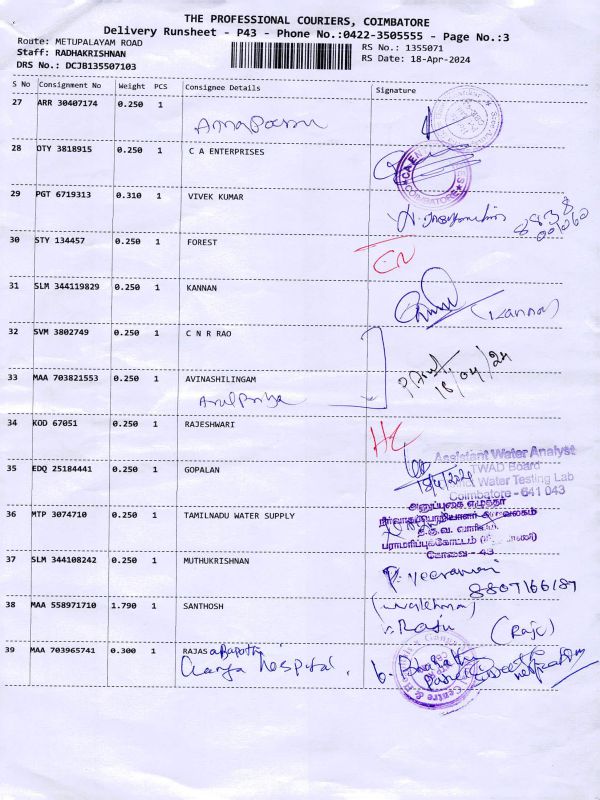 THE PROFESSIONAL COURIERS, COIMBATORE
Delivery Runsheet - P43 - Phone No.:0422-3505555 - Page No.:3
Route: METUPALAYAM ROAD RS No.: 1355071
Staff: RADHAKRISHNAN RS Date: 18-Apr-2024
DRS No.: DCJB135507103
S No Consignment No Weight PCS Consignee Details Signature
27 ARR 30407174 0.250 1
28 OTY 3818915 0.250 1 C A ENTERPRISES
COIMBATORE
29 PGT 6719313 0.310 1 VIVEK KUMAR
30 STY 134457 0.250 1 FOREST
31 SLM 344119829 0.250 1 KANNAN
(Kannan)
32 SVM 3802749 0.250 1 C N R RAO
18/04/24
33 MAA 703821553 0.250 1 AVINASHILINGAM
Arulpriya
34 KOD 67051 0.250 1 RAJESHWARI
Assistant Water Analyst
35 EDQ 25184441 0.250 1 GOPALAN
18/4/2024 TWAD Board
Water Testing Lab
Coimbatore - 641 043
36 MTP 3074710 0.250 1 TAMILNADU WATER SUPPLY
கோவை - 43
37 SLM 344108242 0.250 1 MUTHUKRISHNAN
P. Veeramani
8807166189
38 MAA 558971710 1.790 1 SANTHOSH
Raju (Raju)
39 MAA 703965741 0.300 1 RAJAS
Ganga hospital.